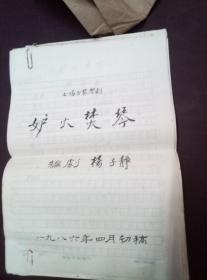 七场古装粤剧
妒火焚琴
编剧 楊子静
一九八六年四月初稿